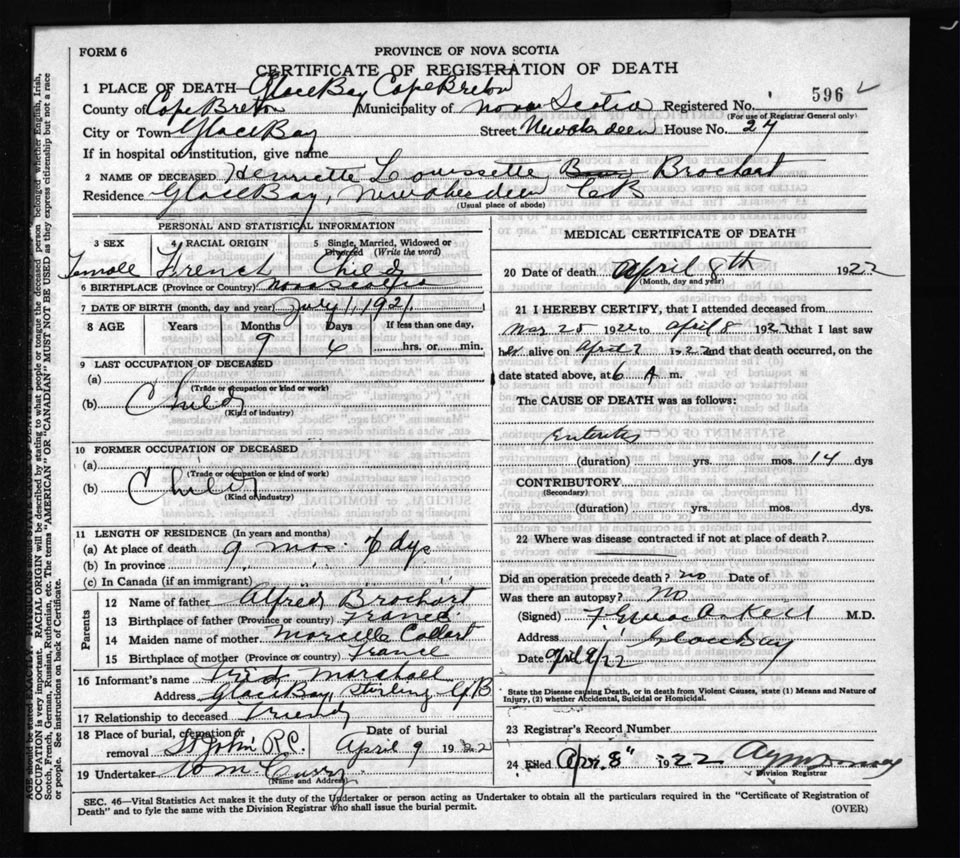 FORM 6
PROVINCE OF NOVA SCOTIA
CERTIFICATE OF REGISTRATION OF DEATH
596
1 PLACE OF DEATH Glace Bay Cape Breton
County of Cape Breton Municipality of Nova Scotia Registered No.
(For use of Registrar General only)
City or Town Glace Bay Street New Aberdeen House No. 24
If in hospital or institution, give name
2 NAME OF DECEASED Henriette Louissette Brochart
Residence Glace Bay, New Aberdeen CB
(Usual place of abode)
PERSONAL AND STATISTICAL INFORMATION
3 SEX 4 RACIAL ORIGIN 5 Single, Married, Widowed or Divorced (Write the word)
Female French Child
6 BIRTHPLACE (Province or Country) Nova Scotia
7 DATE OF BIRTH (month, day and year) July 1, 1921
8 AGE Years Months Days If less than one day,
9 6 hrs. or min.
9 LAST OCCUPATION OF DECEASED
(a)
(Trade or occupation or kind or work)
(b) Child
(Kind of industry)
10 FORMER OCCUPATION OF DECEASED
(a)
(Trade or occupation or kind of work)
(b) Child
(Kind of industry)
11 LENGTH OF RESIDENCE (In years and months)
(a) At place of death 9 mos. 6 dys
(b) In province " "
(c) In Canada (if an immigrant)
Parents
12 Name of father Alfred Brochart
13 Birthplace of father (Province or country) France
14 Maiden name of mother Marcelle Collart
15 Birthplace of mother (Province or country) France
16 Informant's name Marshael
Address Glace Bay Sterling CB
17 Relationship to deceased Friend
18 Place of burial, cremation or removal St John R.C. Date of burial April 9 1922
19 Undertaker Wm Curry
(Name and Address)
MEDICAL CERTIFICATE OF DEATH
20 Date of death April 8th 1922
(Month, day and year)
21 I HEREBY CERTIFY, that I attended deceased from
Mar 25 1922 to April 8 1922 that I last saw
her alive on April 7 1922 and that death occurred, on the
date stated above, at 6 A m.
The CAUSE OF DEATH was as follows:
Enteritis
(duration) yrs. mos. 14 dys
CONTRIBUTORY
(Secondary)
(duration) yrs. mos. dys.
22 Where was disease contracted if not at place of death?
Did an operation precede death? no Date of
Was there an autopsy? No
(Signed) M.D.
Address Glace Bay
Date April 9/22
State the Disease causing Death, or in death from Violent Causes, state (1) Means and Nature of
Injury, (2) whether Accidental, Suicidal or Homicidal.
23 Registrar's Record Number
24 Filed Apr. 8" 1922
Division Registrar
SEC. 46—Vital Statistics Act makes it the duty of the Undertaker or person acting as Undertaker to obtain all the particulars required in the "Certificate of Registration of
Death" and to fyle the same with the Division Registrar who shall issue the burial permit.
(OVER)
OCCUPATION is very important. RACIAL ORIGIN will be described by stating to what people or tongue the deceased person belonged whether English, Irish,
Scotch, French, German, Russian, Ruthenian, etc. The terms "AMERICAN" OR "CANADIAN" MUST NOT BE USED as they express citizenship but not a race
or people. See instructions on back of Certificate.